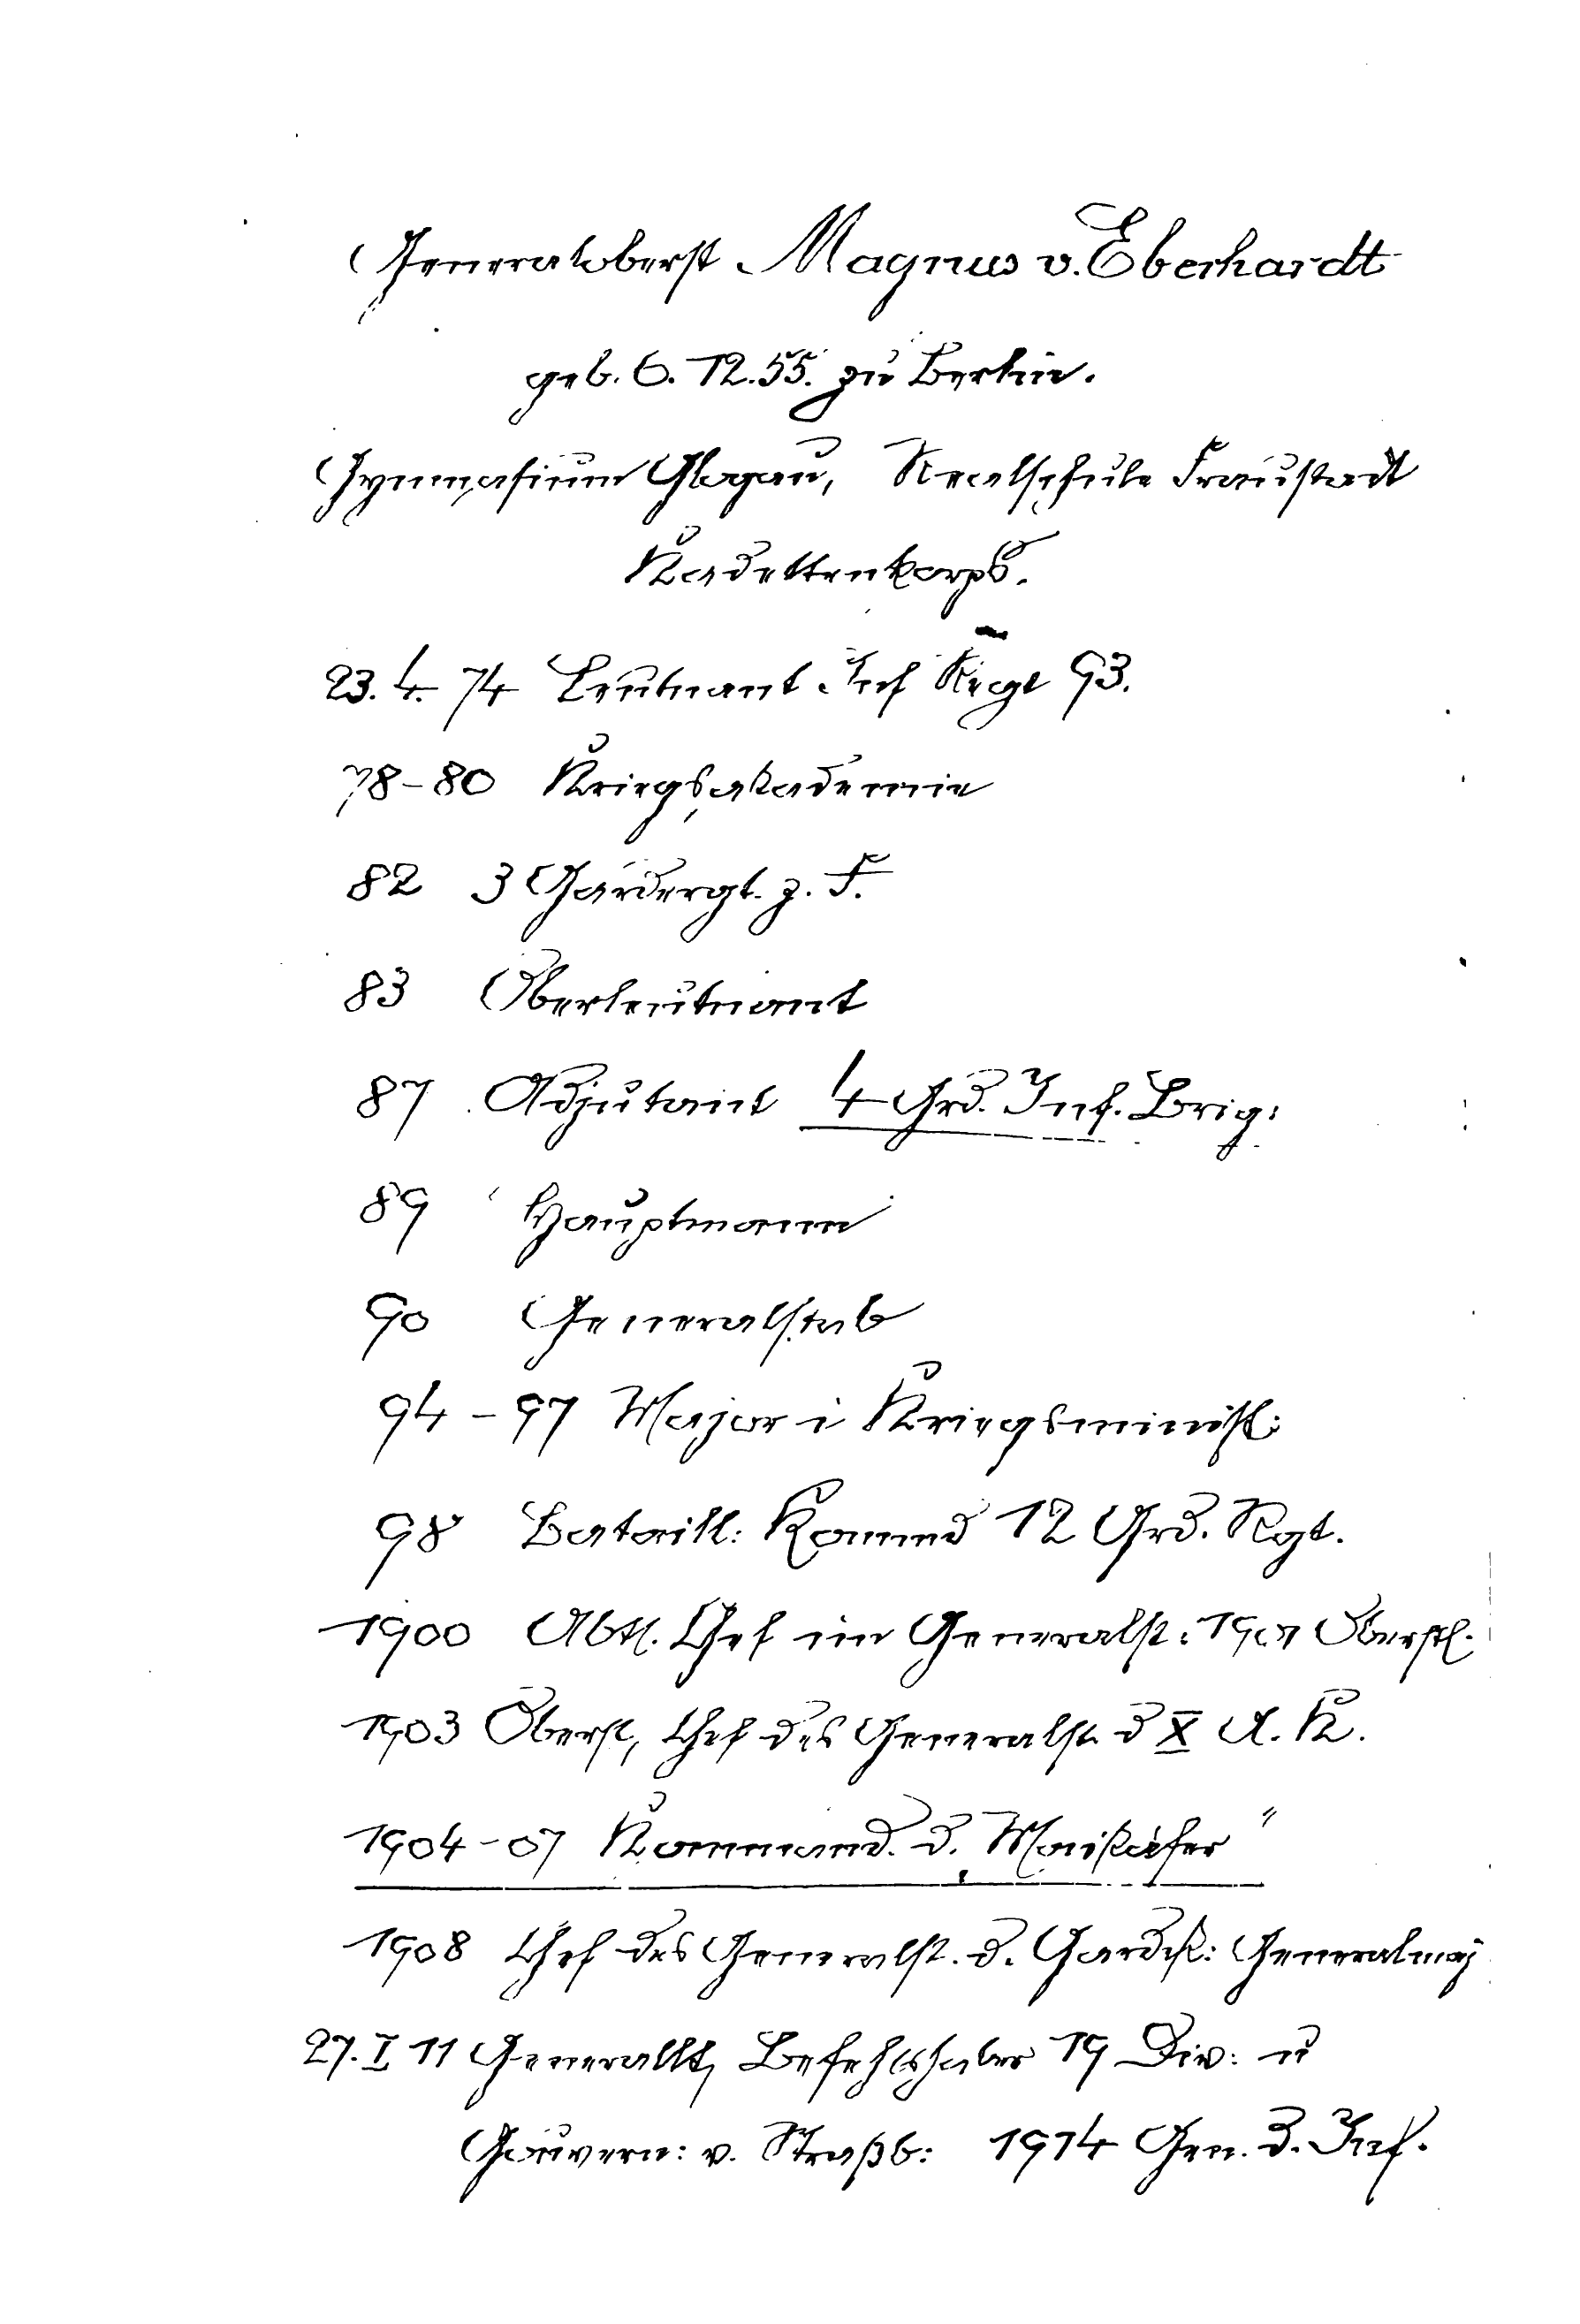 Generaloberst Magnus v. Eberhardt
geb. 6. 12. 55. zu Berlin.
Gymnasium Glogau, Realschule Fraustadt
Kadettenkorps.
23. 4. 74 Leutnant Inf Regt 93.
78-80 Kriegsakademie
82 3 Garderegt. z. F.
83 Oberleutnant
87 Adjutant 4 Grd. Inf. Brig:
89 Hauptmann
90 Generalstab
94 - 97 Major i Kriegsminist:
98 Bataill: Kommd 12 Grd. Rgt.
1900 Abtl. Chef im Generalst: 1901 Oberstl.
1903 Oberst, Chef des Generalst. d X A. K.
1904-07 Kommand. d. Maikäfer"
1908 Chef des Generalst. d. Gardek: Generalmaj
27. I 11 Generallt, Befehlshaber 19 Div: u
Gouvern: v. Straßb: 1914 Gen. d. Inf.